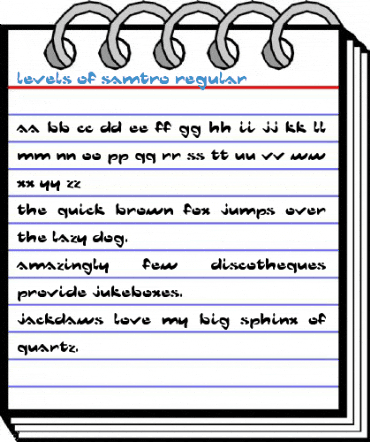 levels of samtro regular
aa bb cc dd ee ff gg hh ii jj kk ll
mm nn oo pp qq rr ss tt uu vv ww
xx yy zz
the quick brown fox jumps over
the lazy dog.
amazingly few discotheques
provide jukeboxes.
jackdaws love my big sphinx of
quartz.